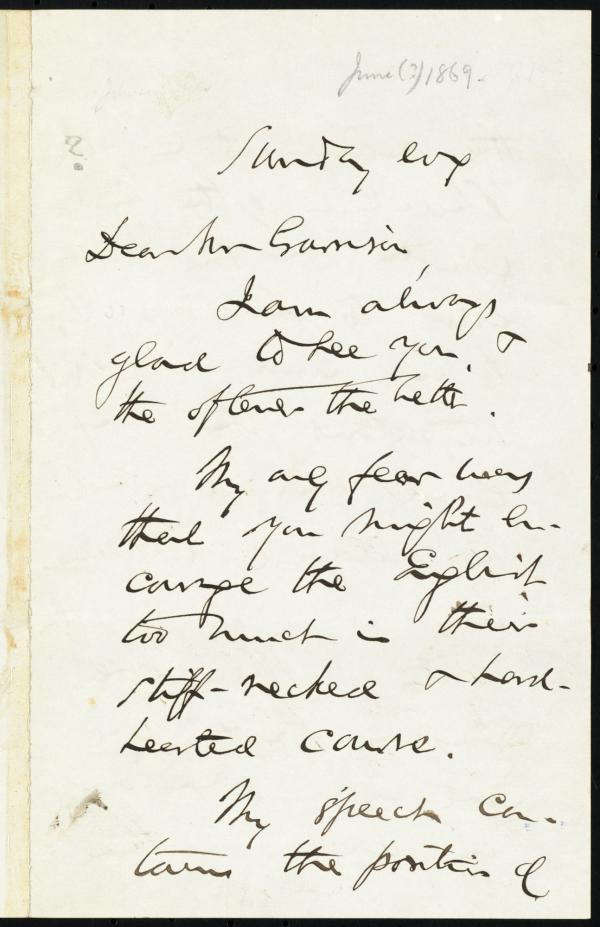 June (?) 1869.
?
Sunday evg
Dear Mr Garrison,
I am always
glad to see you, &
the oftener the better.
My only fear was
that you might en-
courage the English
too much in their
stiff-necked & hard-
hearted course.
My speech con-
tains the position of